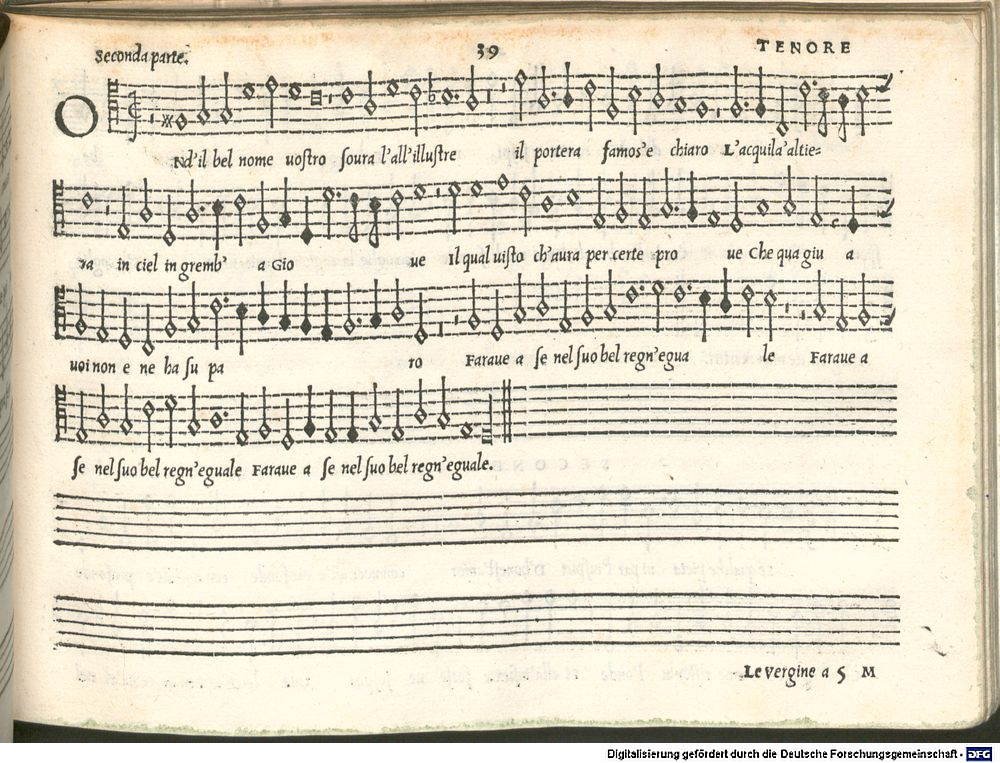 Seconda parte.
39
TENORE
ONd'il bel nome uostro soura l'all'illustre il portera famos'e chiaro L'acquila'altie=
ra in ciel in gremb' a Gio ue Il qual uisto ch'aura per certe pro ue Che qua giu a
uoi non e ne ha su pa ro Faraue a se nel suo bel regn'egua le Faraue a
se nel suo bel regn'eguale Faraue a se nel suo bel regn'eguale.
Le vergine a 5 M
Digitalisierung gefördert durch die Deutsche Forschungsgemeinschaft - DFG